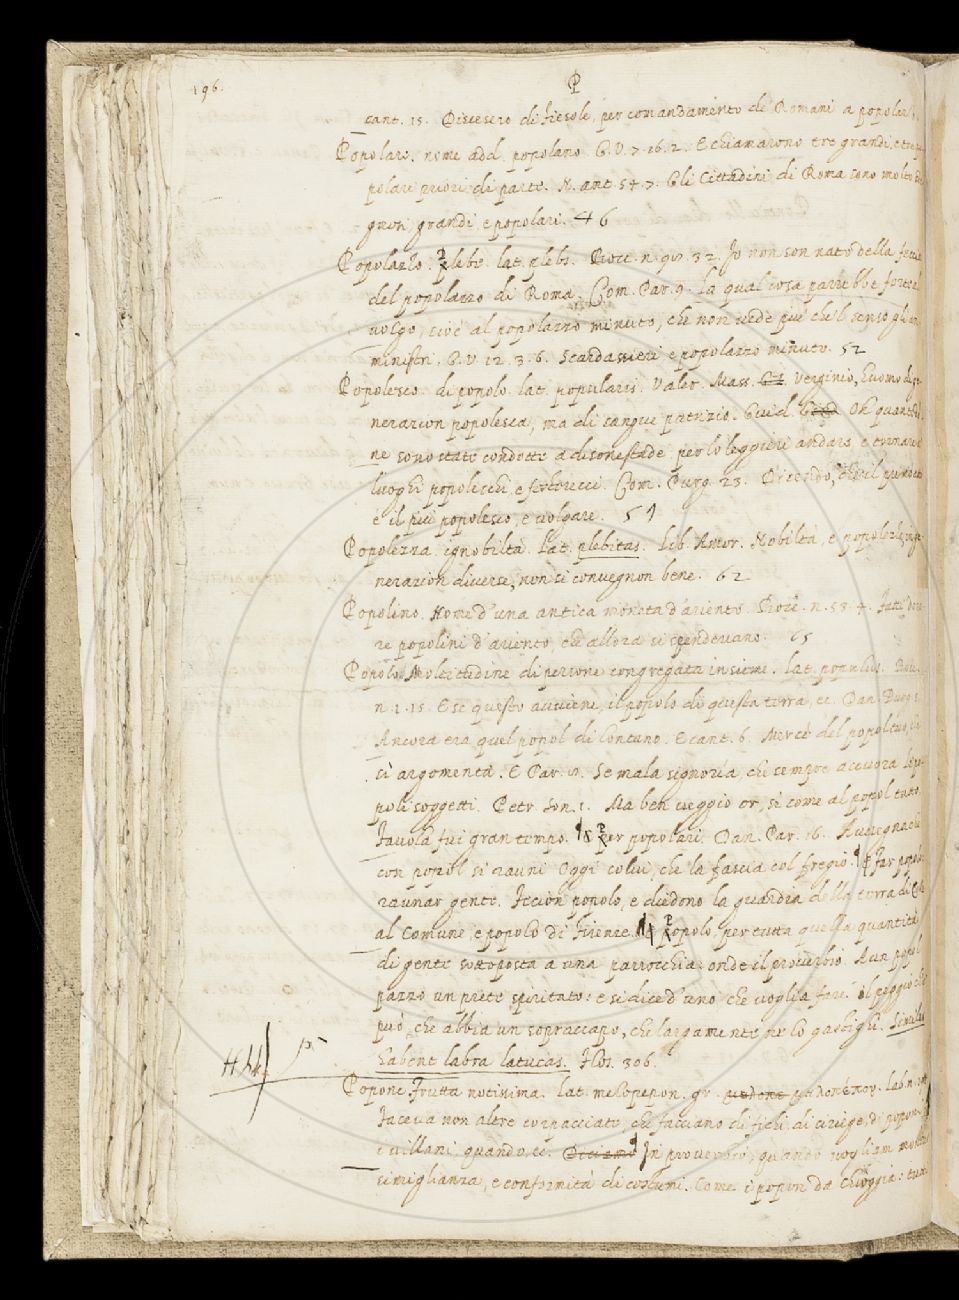 196.
P
cant. 15. Discesero di Fiesole, per comandamento de Romani a popolar
Popolare. nome add. popolano G. V. 7. 16. 2. E chiamarono tre grandi, e tre po
polari priori di parte. N. ant. 54. 7. Gli Cittadini di Roma sono molto
gnori, grandi, e popolari. 46
Popolazzo. Plebe. lat. plebs. Bocc. n. 32. Io non son nato della feccia
del popolazzo di Roma. Com. Par. 9. la qual cosa parrebbe forte al
volgo, cioè al popolazzo minuto, che non vede piu che'l senso gli
ministri. G. V. 12. 3. 6. Scardassieri e popolazzo minuto. 52
Popolesco. di popolo. lat. popularis. Valer. Mass. Verginio, huomo di ge
nerazion popolesca, ma di sangue patrizio. Guid. G. Oh quante
ne sono state condotte a disonestade per lo leggieri andare, e tornare
luoghi popoleschi, e festerecci. Com. Purg. 23. Dicendo, che il
è il piu popolesco, e volgare. 59
Popolezza. ignobiltà. Lat. plebitas. Lib. Amor. Nobiltà, e popolezza, in ge
nerazion diverse, non si convegnon bene. 62
Popolino. Nome d'una antica moneta d'ariento. Bocc. n. 53. 4. Fatti
re popolini d'ariento, che allora si spendevano. 65
Popolo. Moltitudine di persone congregata insieme. lat. populus. Bocc.
n. 1. 15. E se questo avviene, il popolo di questa terra, ec. Dan. Purg. 3.
Ancora era quel popol di lontano. E cant. 6. Mercè del popol tuo, che
si argomenta. E Par. 8. Se mala signoria, che sempre accuora Li po
poli soggetti. Petr. Son. 1. Ma ben veggio or, si come al popol tutto
Favola fui gran tempo. Per popolari. Dan. Par. 16. Avvegnachè
con popol si rauni Oggi colui, che la fascia col fregio. far popolo
raunar gente. Feciono popolo, e diedono la guardia della terra di
al Comune, e popolo di Firenze. popolo, per tutta quella quantità
di gente sottoposta a una parrocchia: onde il proverbio. A un popol
pazzo un prete spiritato: e si dice d'uno, che voglia fare il peggio, che
può, che abbia un sopraccapo, che largamente, ne lo gastighi. Similes
habent labra latucas. Flos. 306.
Popone. Frutta notissima. Lat. melopepon. gr. μηλοπέπων. Lab. n.
Faceva non altre corpacciate, che facciano di fichi, di ciriege, di poponi
i villani, quando, ec. Diciamo In proverbio, quando vogliam mostrar
simiglianza, e conformità di costumi. Come i popon da Chioggia: tutti